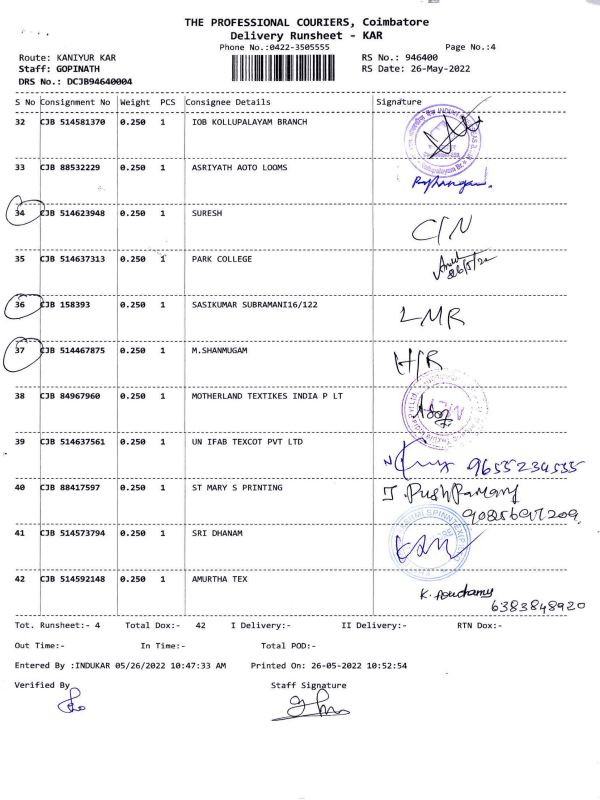 THE PROFESSIONAL COURIERS, Coimbatore
Delivery Runsheet - KAR
Phone No.:0422-3505555 Page No.:4
Route: KANIYUR KAR RS No.: 946400
Staff: GOPINATH RS Date: 26-May-2022
DRS No.: DCJB94640004
S No Consignment No Weight PCS Consignee Details Signature
32 CJB 514581370 0.250 1 IOB KOLLUPALAYAM BRANCH
33 CJB 88532229 0.250 1 ASRIYATH AOTO LOOMS
34 CJB 514623948 0.250 1 SURESH C/N
35 CJB 514637313 0.250 1 PARK COLLEGE
26/5/22
36 CJB 158393 0.250 1 SASIKUMAR SUBRAMANI16/122 LMR
37 CJB 514467875 0.250 1 M.SHANMUGAM H/R
38 CJB 84967960 0.250 1 MOTHERLAND TEXTIKES INDIA P LT
39 CJB 514637561 0.250 1 UN IFAB TEXCOT PVT LTD
9655234535
40 CJB 88417597 0.250 1 ST MARY S PRINTING
41 CJB 514573794 0.250 1 SRI DHANAM
42 CJB 514592148 0.250 1 AMURTHA TEX
6383848920
Tot. Runsheet:- 4 Total Dox:- 42 I Delivery:- II Delivery:- RTN Dox:-
Out Time:- In Time:- Total POD:-
Entered By :INDUKAR 05/26/2022 10:47:33 AM Printed On: 26-05-2022 10:52:54
Verified By Staff Signature